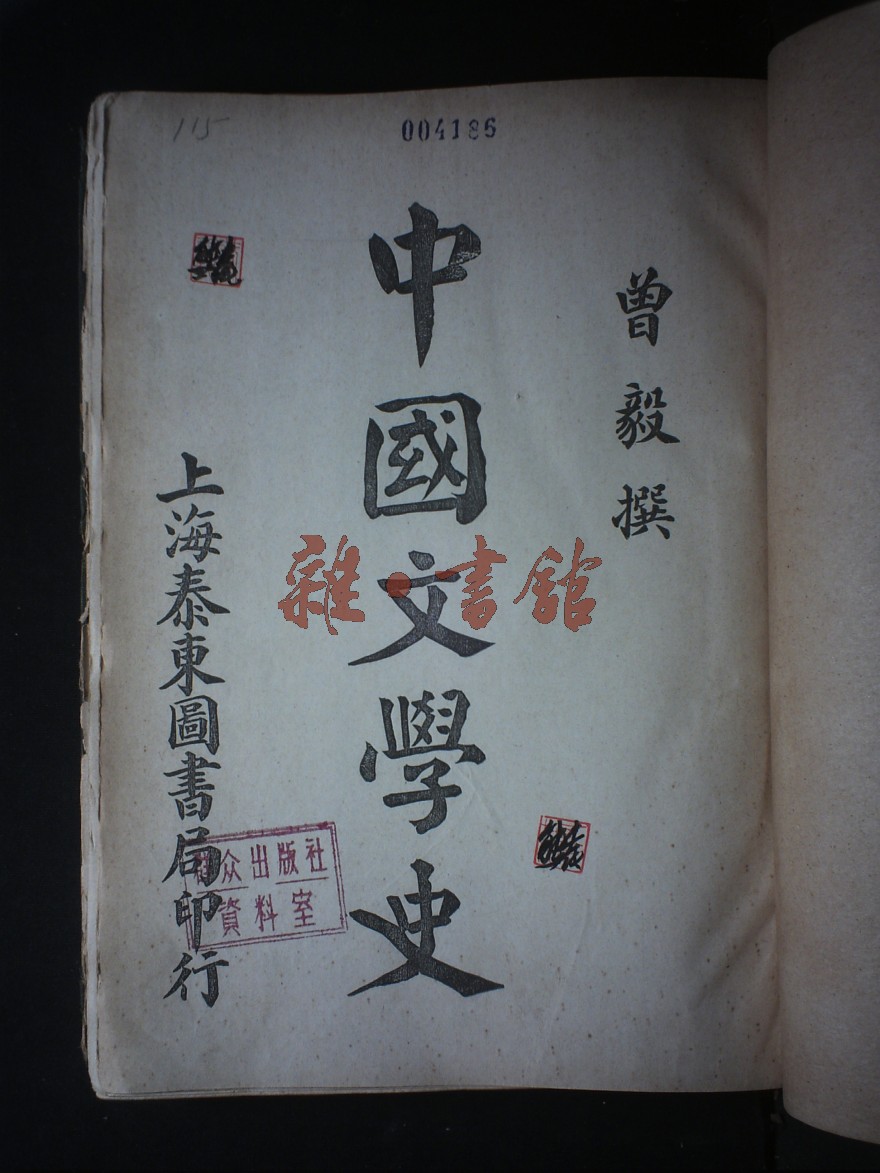 115
004186
曾毅撰
中國文學史
上海泰東圖書局印行
雜·書館
群众出版社
資料室